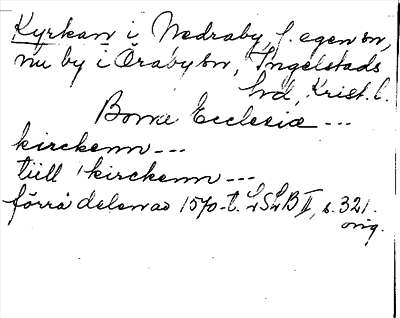 Kyrkan i Nedraby, f. egen sn,
nu by i Öraby sn, Ingelstads
hd, Krist. l.
Bome Ecclesiæ ---
kirckenn ---
tiill kirckenn ---
förra delen av 1570-t. LSLB II, s. 321.
orig.